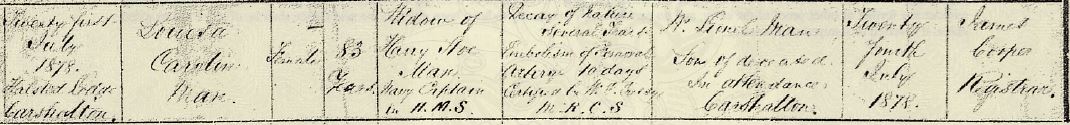 Twenty first
July
1878.
Halsted Lodge
Carshalton.
Louisa
Carolin
Man.
Female
83
Years
Widow of
Harry Stoe
Man.
Navy Captain
in H.M.S
Decay of Nature
Several Years
Embolism of Femoral
Artery 10 days
Certified by
M.R.C.S
Man
Son of deceased
In attendance
Carshalton
Twenty
fourth
July
1878.
James
Cooper
Registrar.